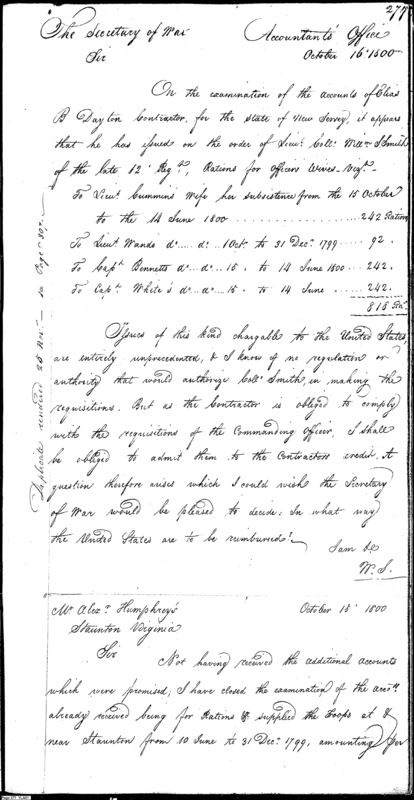 277
The Secretary of War Accountants' Office
Sir October 16th 1800
On the examination of the accounts of Elias
B Dayton Contractor, for the State of New Jersey, it appears
that he has issued on the order of Lieut. Coll. Wm. S Smith
of the late 12 Regt., Rations for Officers Wives – Vizt. –
To Lieut. Cummins Wife her subsistence from the 15 October
to the 14 June 1800 .......... 242 Rations
To Lieut. Wands do ... do .. 1 Octr. to 31 Decr. 1799 ..... 92.
To Capt. Bennetts do ... do .. 15. to 14 June 1800 .... 242.
To Capt. White's do ... do .. 15. to 14 June ....... 242.
818
Issues of this kind chargable to the United States
are entirely unprecedented, & I know of no regulation or
authority that would authorize Coll. Smith, in making the
requisitions. But as the Contractor is obliged to comply
with the requisitions of the Commanding Officer, I shall
be obliged to admit them to the Contractors credit. A
question therefore arises which I could wish the Secretary
of War would be pleased to decide. In what way
the United States are to be reimbursed? –
I am &c
W. S.
Duplicate rendered 25 Nov. – in Page 307. –
Mr Alexr. Humphreys October 15th 1800
Staunton Virginia
Sir
Not having received the additional accounts
which were promised, I have closed the examination of the accots.
already received being for Rations supplied the Troops at &
near Staunton from 10 June to 31 Decr. 1799, amounting per